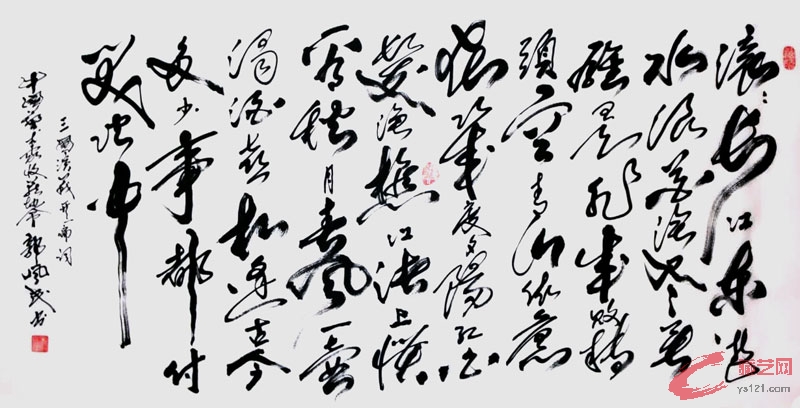 滚滚长江东逝
水浪花淘尽英
雄是非成败转
頭空青山依旧
在几度夕陽红白
发渔樵江渚上惯
看秋月春风一壶
浊酒喜相逢古今
多少事都付
笑谈中
三国演义开篇词
郭 书
藏艺网
ys121.com